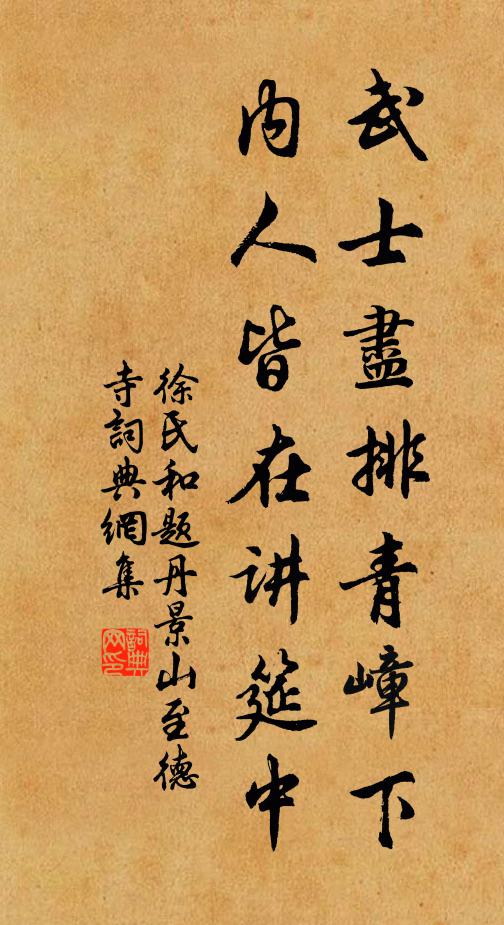 武士盡排青嶂下
内人皆在讲筵中
徐氏和题丹景山至德
寺詞典網集
詞典网印